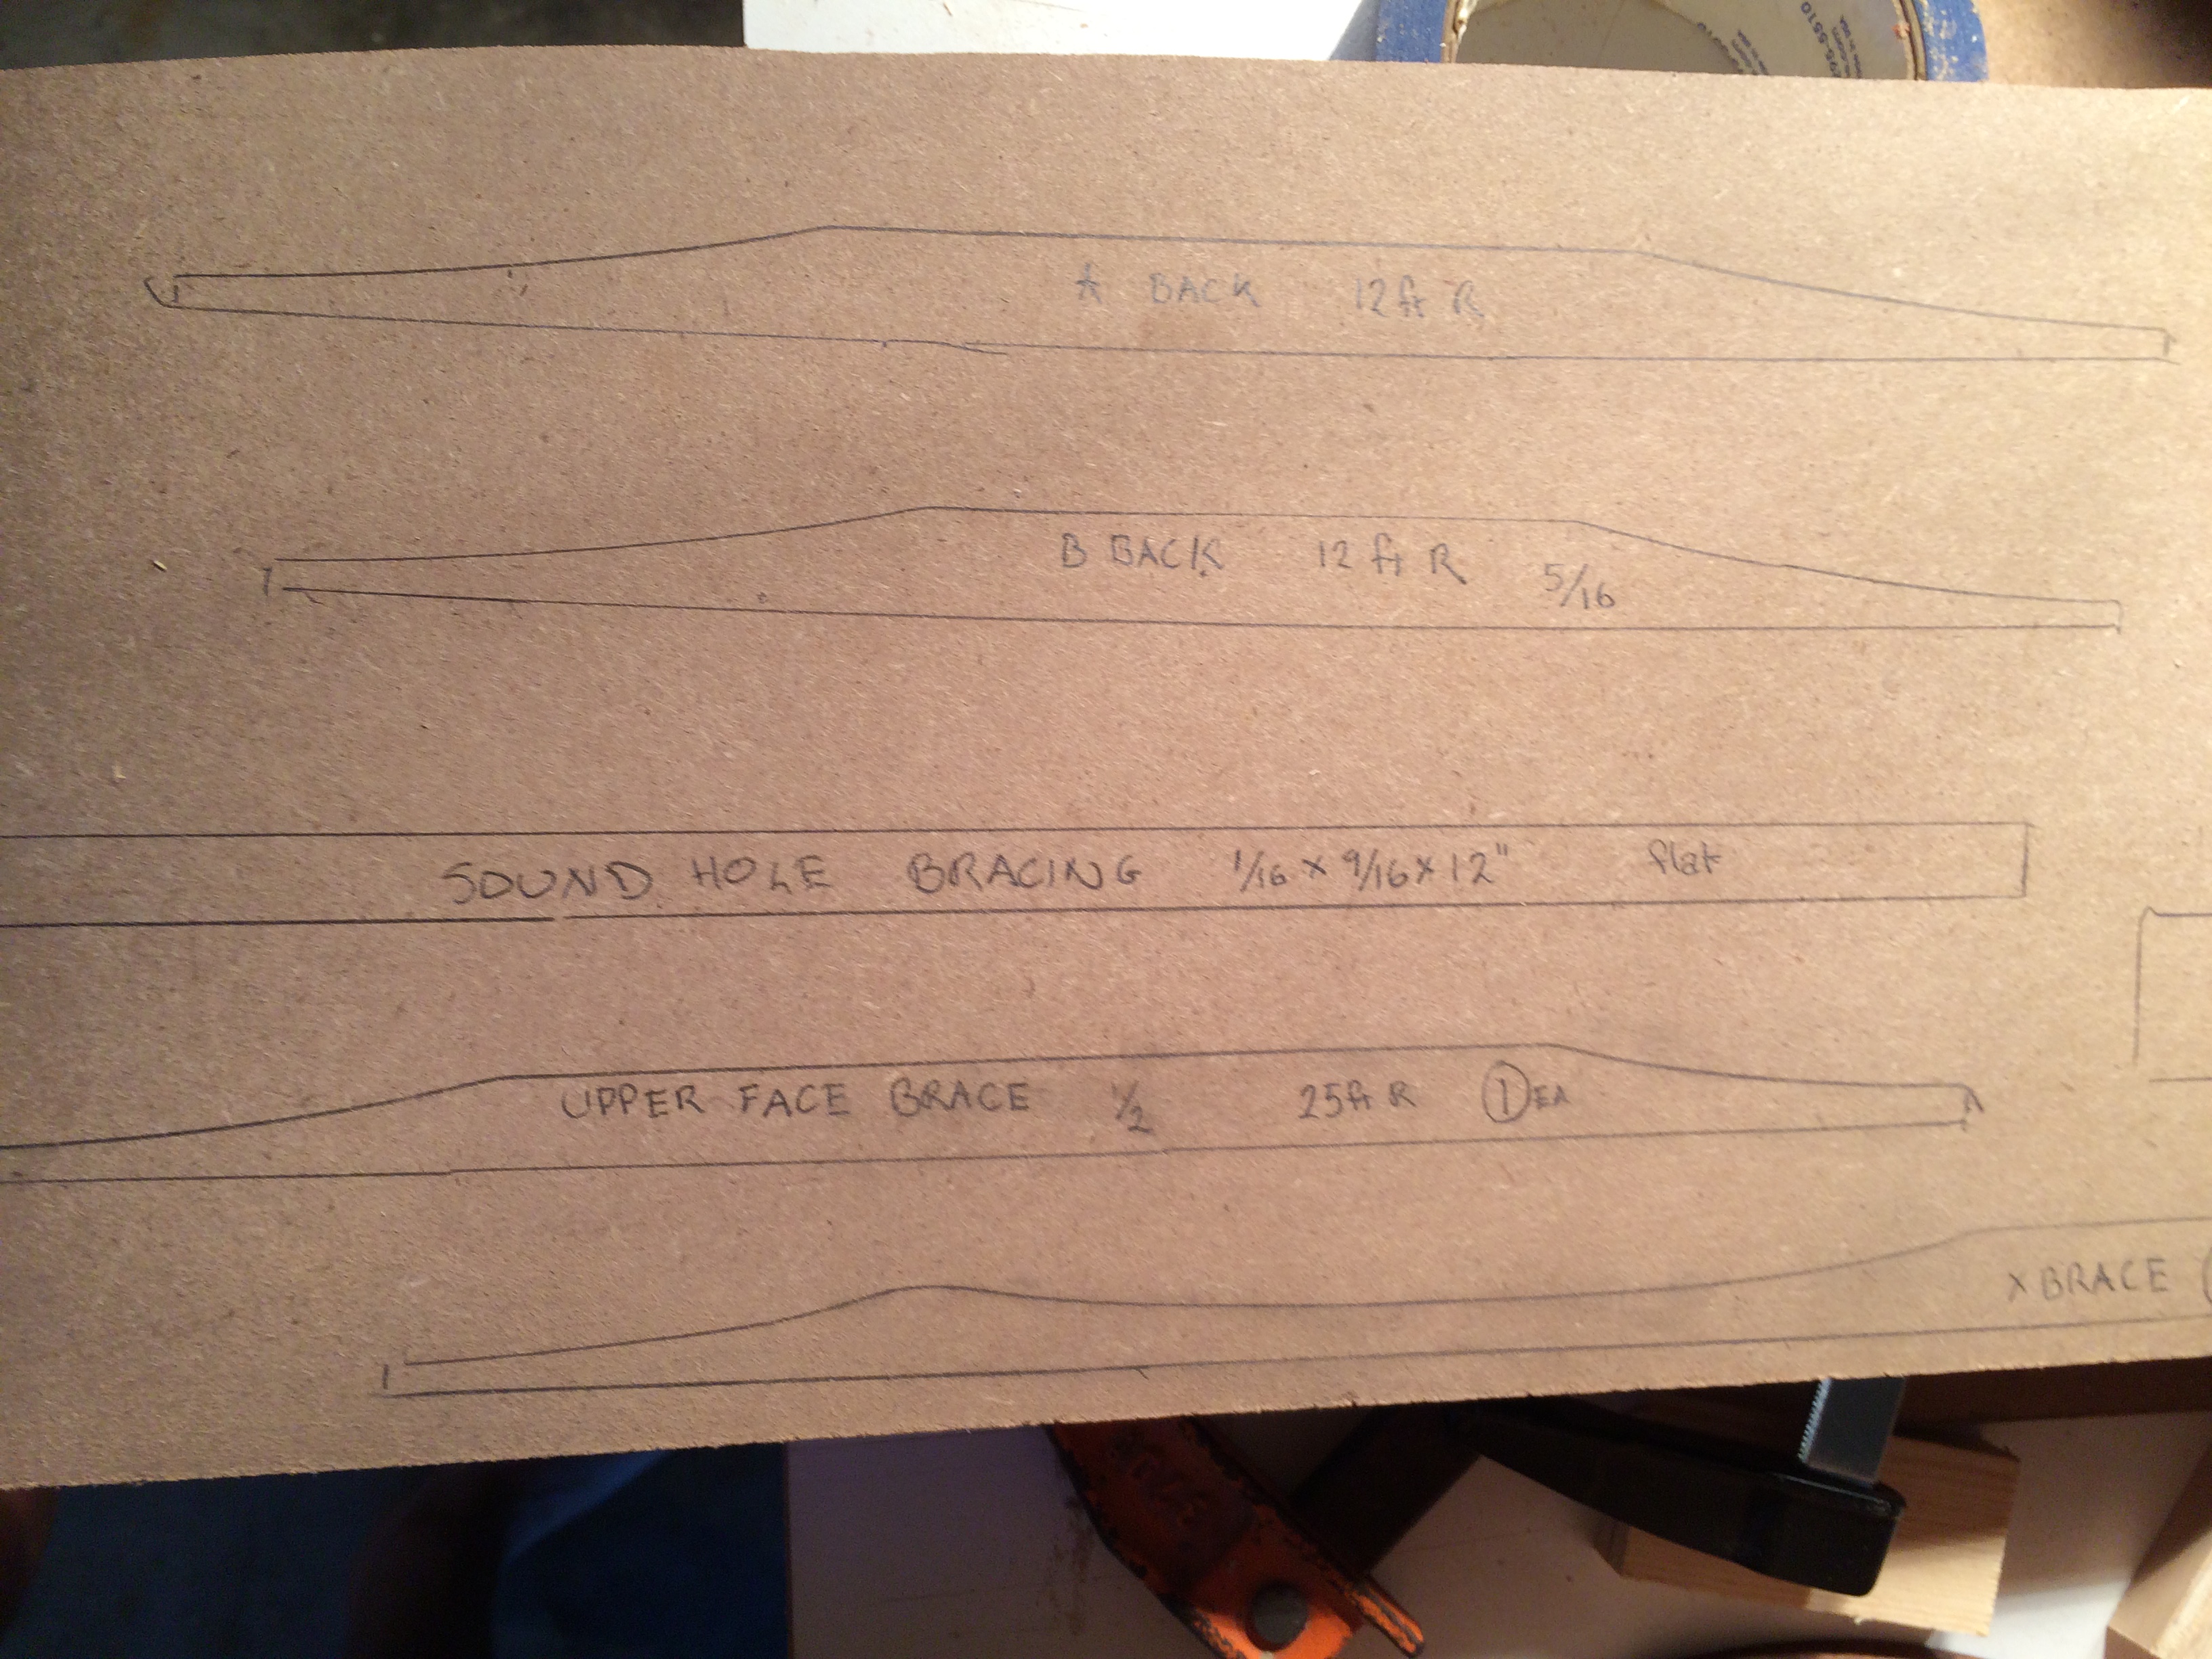 A BACK 12ft R
B BACK 12 ft R 5/16
SOUND HOLE BRACING 1/16 x 9/16 x 12" flat
UPPER FACE BRACE 1/2 25ft R 1 EA
X BRACE